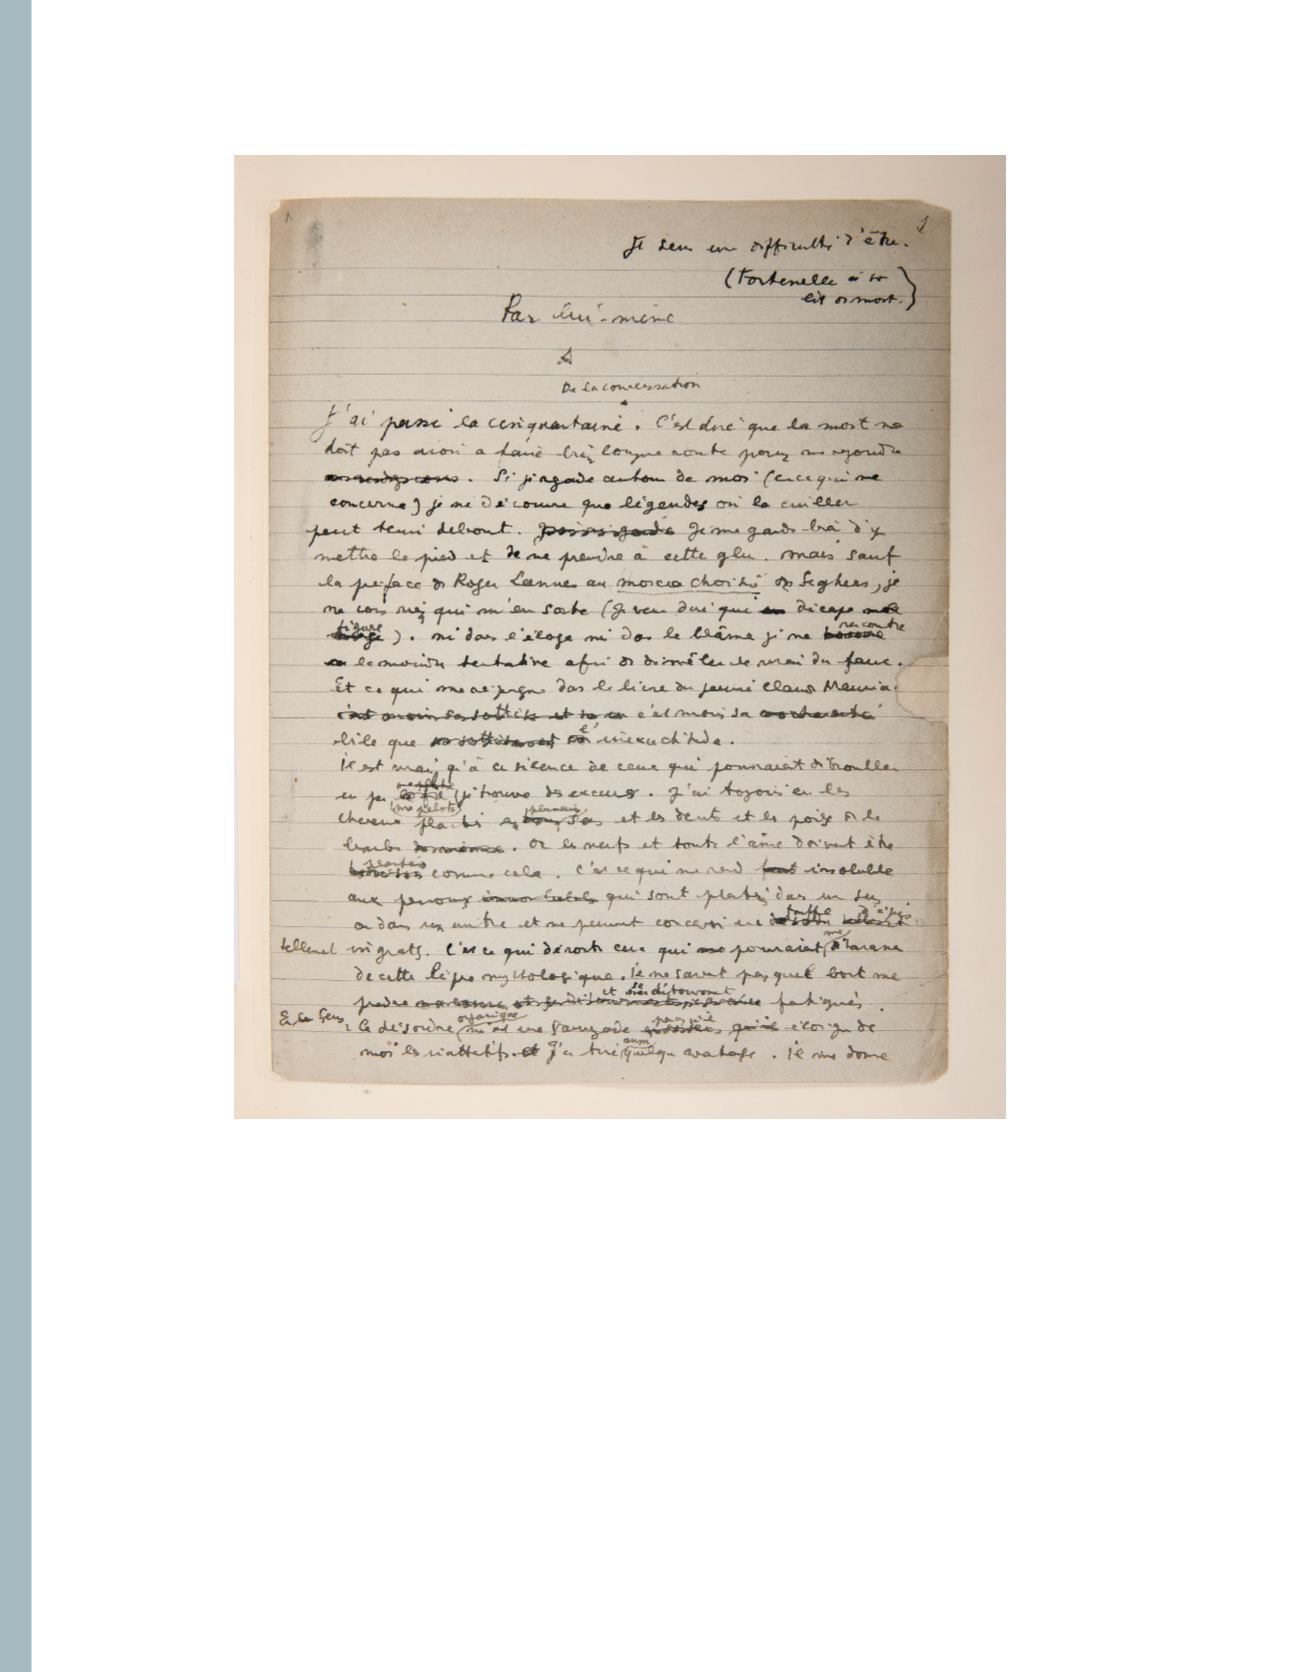 1
Je sens une difficulté d'être.
(Fontenelle à son
lit de mort.)
Par lui-même
De la conversation
J'ai passé la cinquantaine. C'est dire que la mort ne
doit pas avoir à faire bien longue route pour me rejoindre
Si je regarde autour de moi (en ce qui me
concerne) je ne découvre que légendes où la cuiller
peut tenir debout. Je me garde bien d'y
mettre le pied et de me prendre à cette glu. Mais sauf
la préface de Roger Lannes au morceaux choisis de Seghers, je
ne vois rien qui m'en sorte (Je veux dire qui décape ma
figure). Ni dans l'éloge ni dans le blâme je ne rencontre
la moindre tentative afin de démêler le vrai du faux.
Et ce qui me répugne dans le livre du jeune Claude Mauriac
c'est moins sa
que l'inexactitude.
Il est vrai qu'à ce silence de ceux qui pourraient débrouiller
un peu ma pelote je trouve des excuses. J'ai toujours eu les
cheveux plantés en plusieurs sens et les dents et les poils de la
barbe. Or les nerfs et toute l'âme doivent être
plantés comme cela. C'est ce qui me rend insoluble
aux personnes qui sont plantés dans un sens
ou dans un autre et ne peuvent concevoir une touffe d'épis
tellement ingrats. C'est ce qui déroute ceux qui pourraient me
de cette lèpre mythologique. Ils ne savent par quel bout me
prendre et se détournent fatigués.
Ce désordre organique m'est une sauvegarde parce qu'il éloigne de
moi les inattentifs. J'en tire aussi quelque avantage. Il me donne